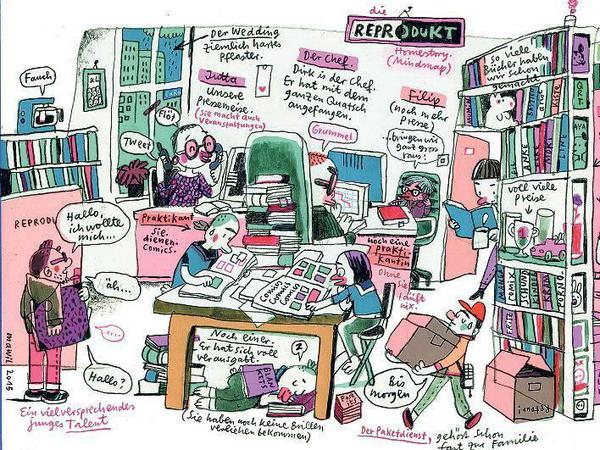 die
REPRODUKT
Homestory.
(Mindmap)
Der Wedding
ziemlich hartes
Pflaster.
Fauch
Jutta
Unsere
Pressemeise.
(Sie macht auch
Veranstaltungen)
Der Chef.
Dirk ist der Chef.
Er hat mit dem
ganzen Quatsch
angefangen.
Filip
(noch mehr
Presse)
..bringen wir
ganz gross
raus!
so viele
Bücher haben
wir schon
gemacht
Flöt
Tweet
Grummel
voll viele
Preise
REPRODU
Hallo,
ich wollte
mich...
Praktikant
Sie.
dienen.
Comics.
noch eine
Prakti-
kantin
Ohne
Sie
läuft
nix.
Comics
Comics
Comics
äh...
...
Hallo?
Noch einer.
Er hat sich voll
verausgabt.
Z
(Sie haben noch keine Brillen
verliehen bekommen)
Bis
morgen
Retouren
mawil 2015
Ein vielversprechendes
junges Talent
Der Paketdienst, gehört schon
fast zur Familie